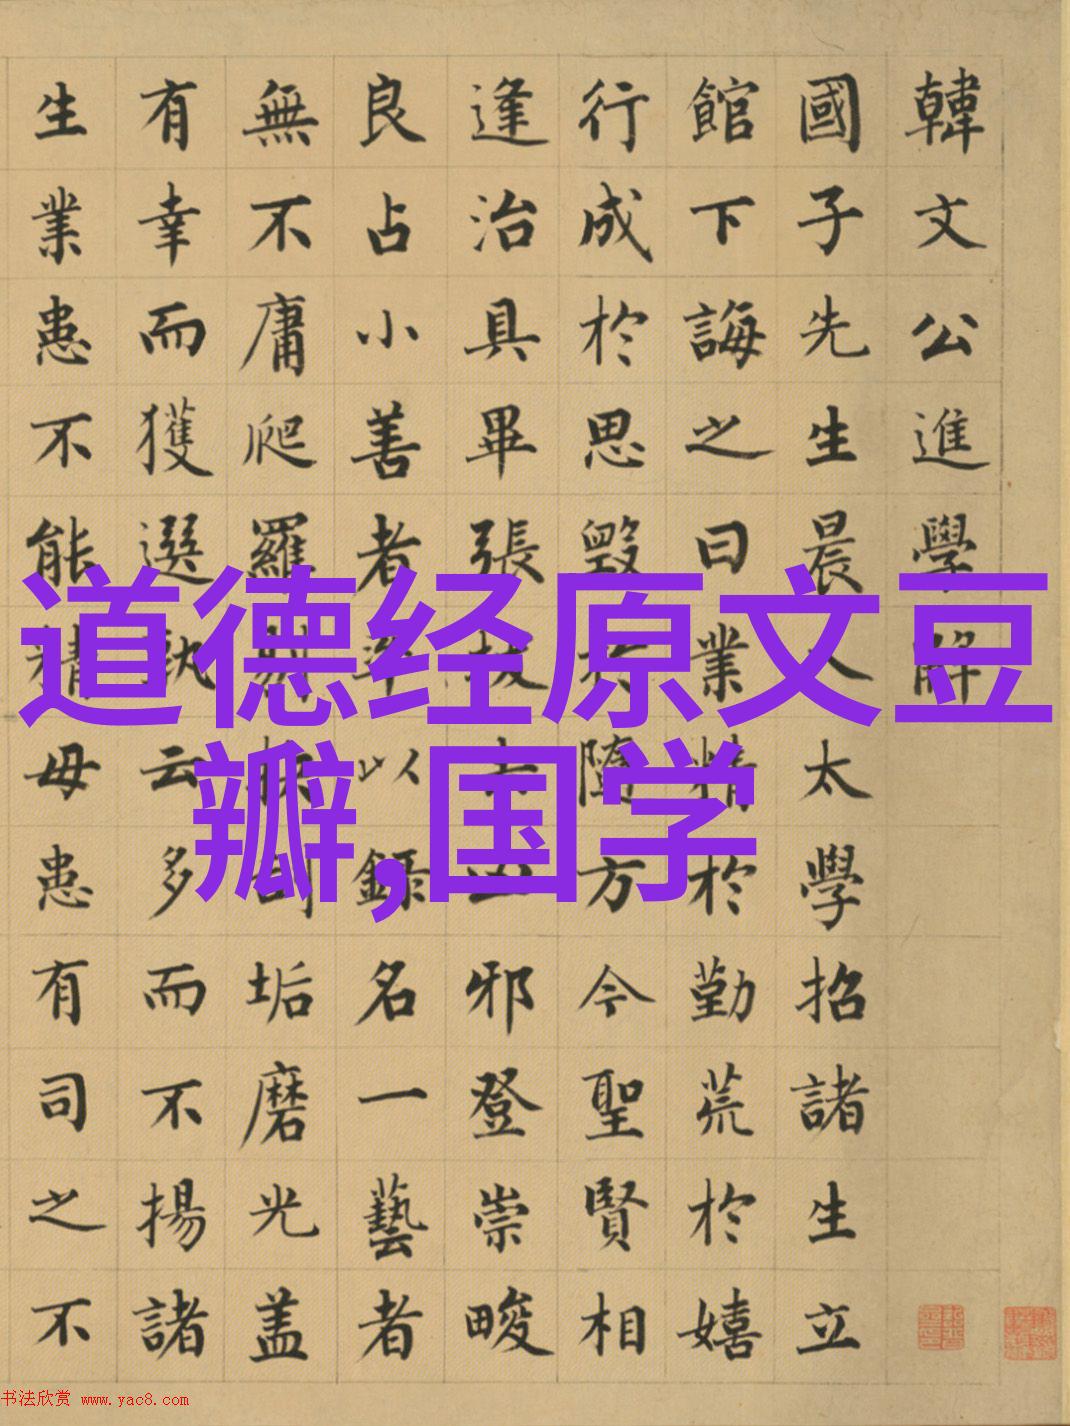 韓文公進學解
國子先生晨入太學招諸生立
館下誨之曰業精於勤荒於嬉
行成於思毀於隨方今聖賢相
逢治具畢張拔去凶邪登崇畯
良占小善者率以錄名一藝者
無不庸爬羅剔抉刮垢磨光盖
有幸而獲選孰云多而不揚諸
生業患不能精毋患有司之不
道德经原文豆
瓣,国学
书法欣赏 www.yac8.com